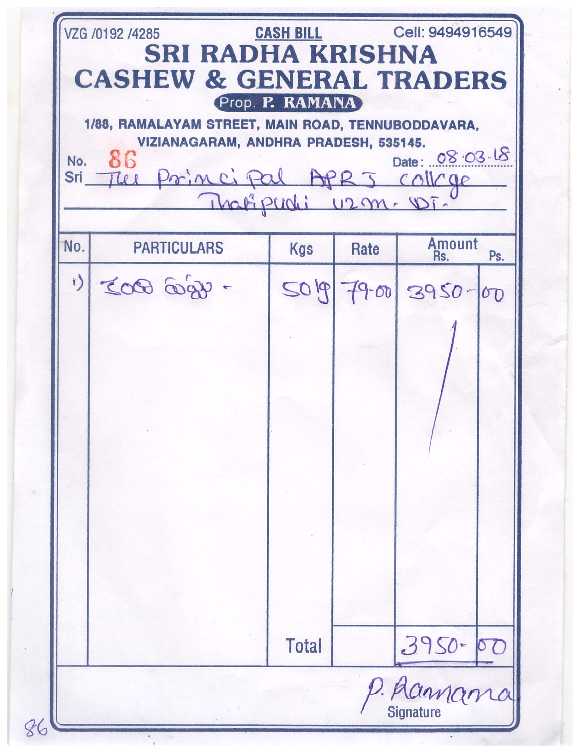 VZG /0192 /4285 CASH BILL Cell: 9494916549
SRI RADHA KRISHNA
CASHEW & GENERAL TRADERS
Prop. P. RAMANA
1/88, RAMALAYAM STREET, MAIN ROAD, TENNUBODDAVARA,
VIZIANAGARAM, ANDHRA PRADESH, 535145.
No. 86 Date: 08-03-18
Sri The Principal APRJ College
Thatipudi VZM. DT.
No. PARTICULARS Kgs Rate Amount
Rs. Ps.
1) కంది పప్పు - 50 79-00 3950-00
Total 3950-00
P. Ramana
Signature
86